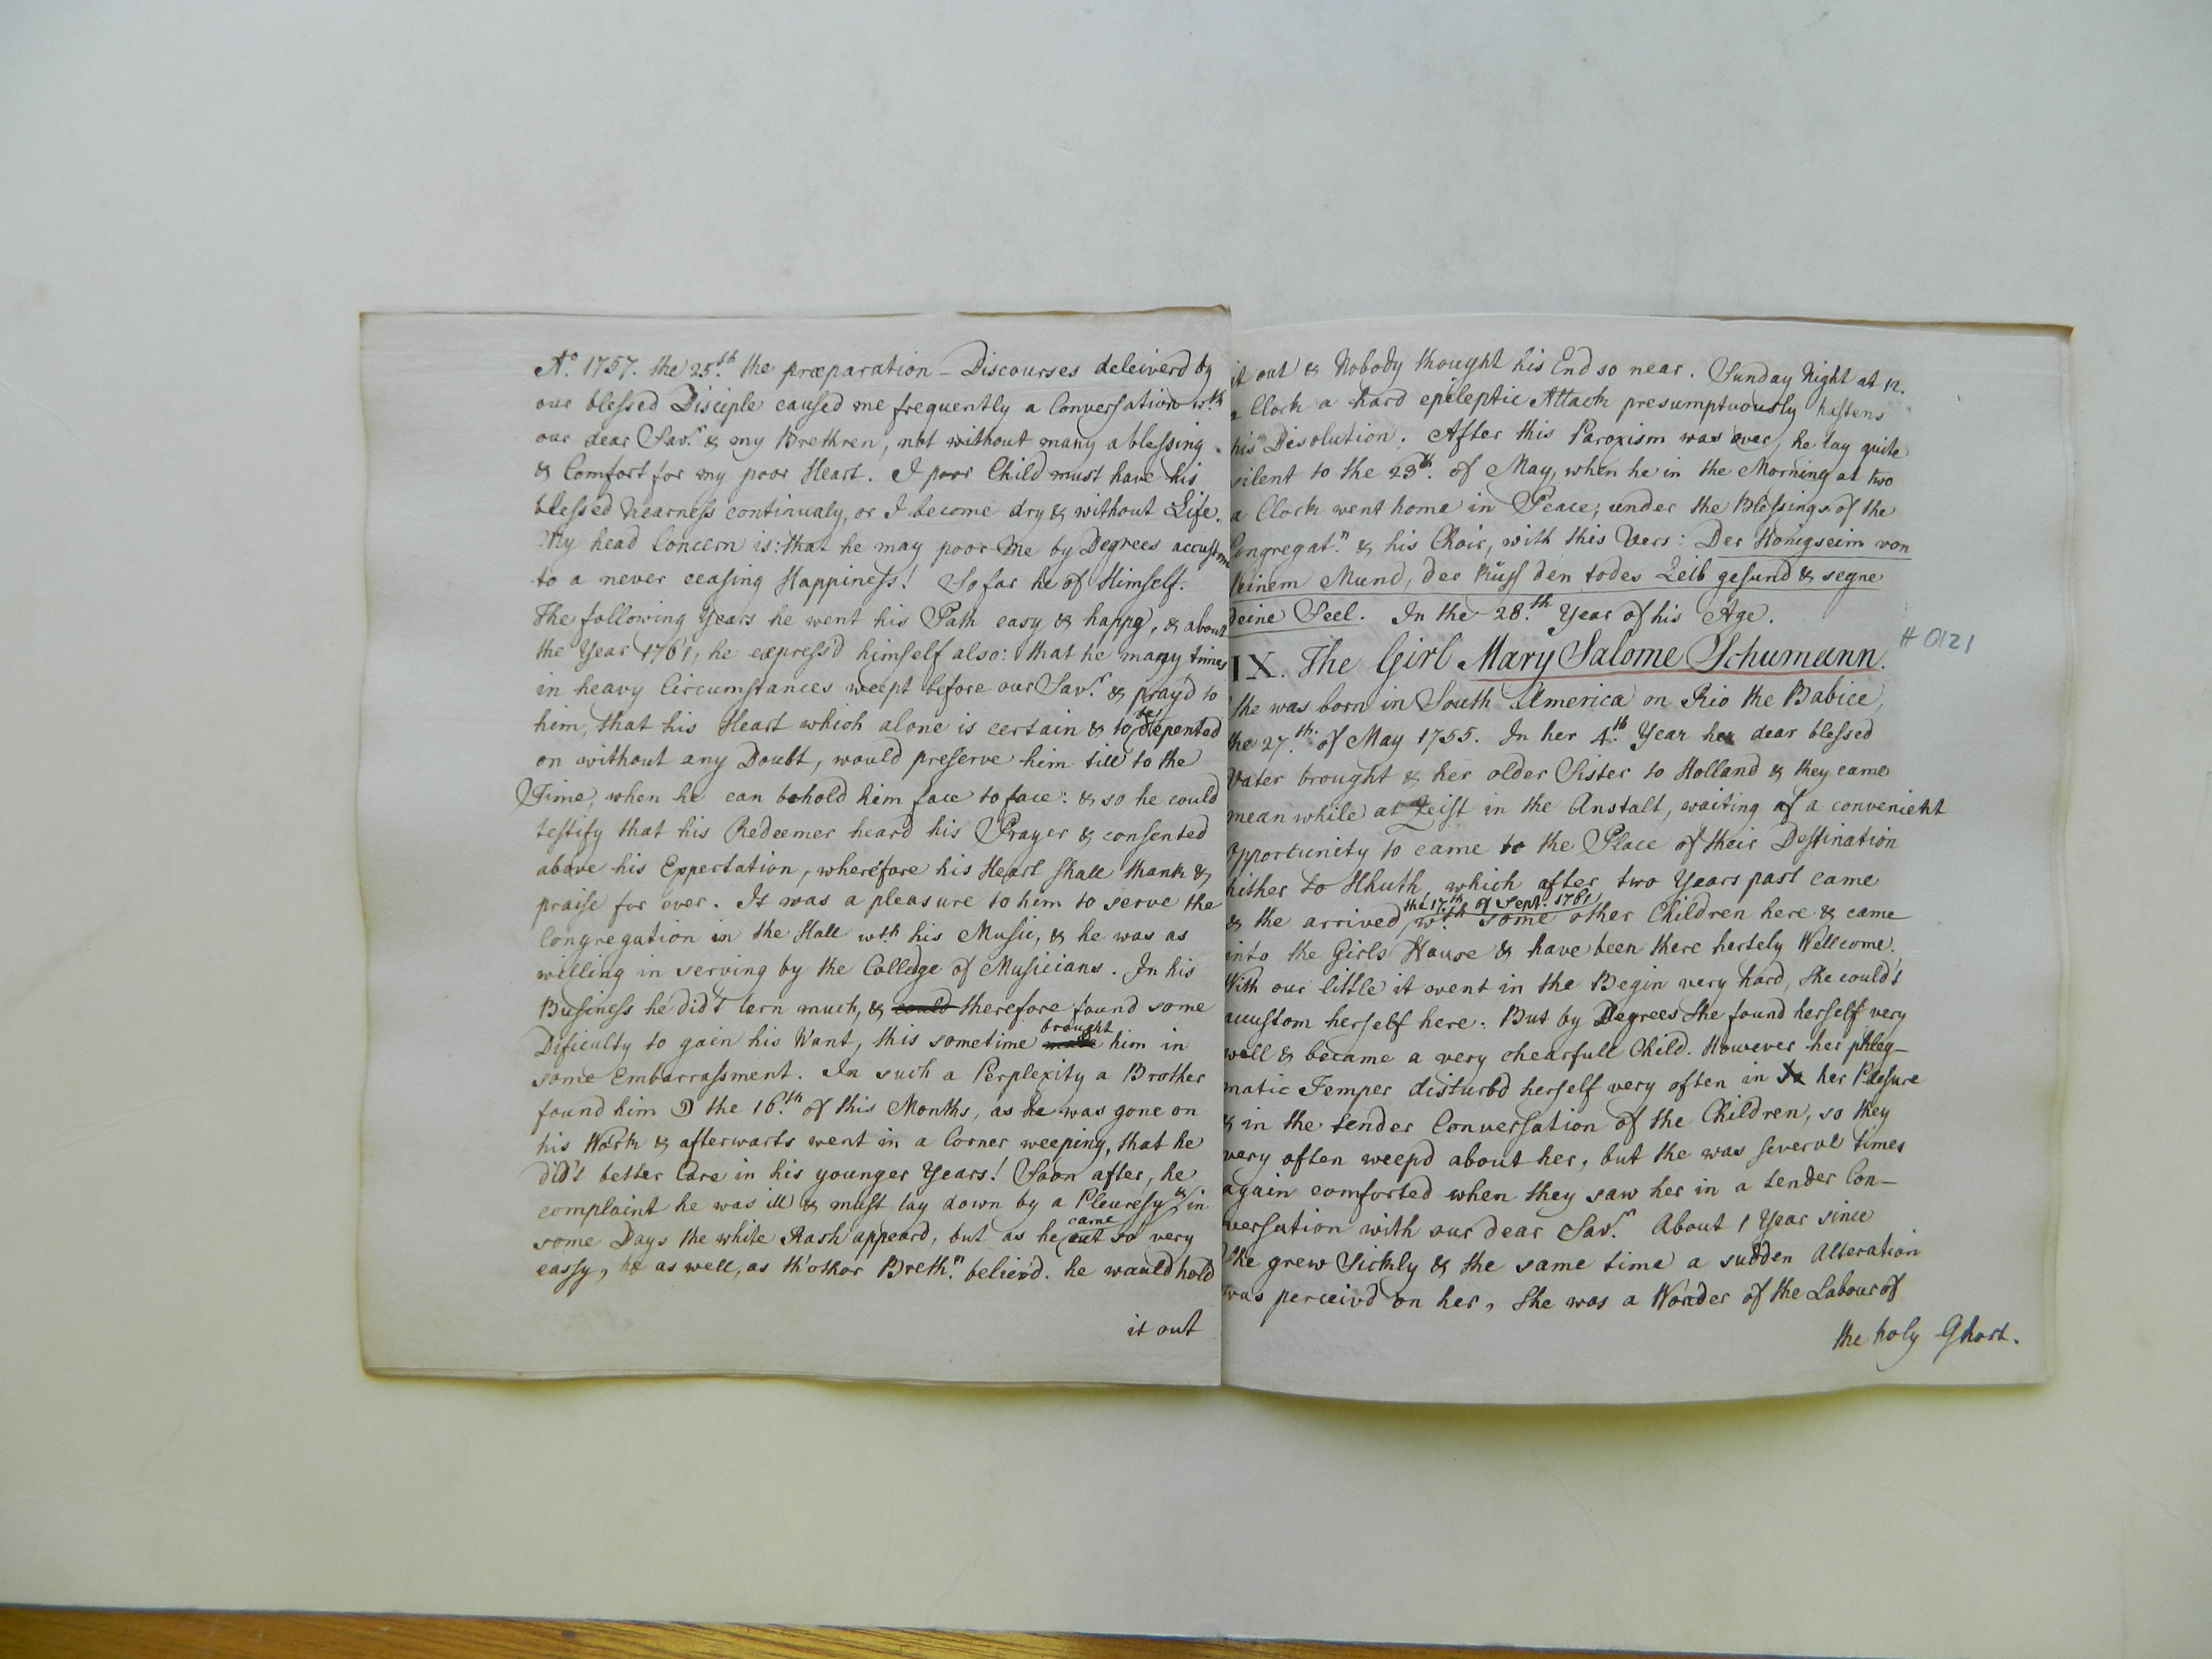 Aº. 1757. the 25.th the præparation - Discourses deleiverd by
our blessed Disciple caused me frequently a Conversation wth
our dear Sav.r & my Brethren, not without many a blessing
& Comfort for my poor Heart. I poor Child must have his
blessed Nearness continualy, or I become dry & without Life.
My head Concern is: that he may poor me by Degrees accustom
to a never ceasing Happiness! So far he of Himself.
The following Years he went his Path easy & happy, & about
the Year 1761, he express'd himself also: that he many times
in heavy Circumstances weept before our Sav.r & pray'd to
him, that his Heart which alone is certain & to be depented
on without any Doubt, would preserve him till to the
Time, when he can behold him face to face: & so he could
testify that his Redeemer heard his Prayer & consented
above his Expectation, wherefore his Heart shall thank &
praise for ever. It was a pleasure to him to serve the
Congregation in the Hall wth his Music, & he was as
willing in serving by the Colledge of Musicians. In his
Business he did't lern much, & could therefore found some
Dificulty to gain his Want, this sometime brought him in
some Embarrassment. In such a Perplexity a Brother
found him ☽ the 16.th of this Months, as he was gone on
his Work & afterwarts went in a Corner weeping, that he
did't better Care in his younger Years! Soon after, he
complaint he was ill & must lay down by a Pleuresy, & in
some Days the white Rash appeard, but as he came out so very
eassy, he as well, as th'othor Breth.n believ'd. he would hold
it out
it out & Nobody thought his End so near. Sunday Night at 12.
a Clock a hard epileptic Attack presumptuously hastens
his Disolution. After this Paroxism was over, he lay quite
silent to the 23.th of May, when he in the Morning at two
a Clock went home in Peace, under the Blessings of the
Congregat.n & his Choir, with this Vers: Der Honigseim von
seinem Mund, der küss den todes Leib gesund & segne
deine Seel. In the 28.th Year of his Age.
IX. The Girl Mary Salome Schumann. # 0121
She was born in South America on Rio the Babice,
the 27.th of May 1755. In her 4.th Year her dear blessed
Vater brought & her older Sister to Holland & they came
mean while at Zeist in the Anstalt, waiting of a convenient
Opportunity to came to the Place of their Destination
hither to Hhuth, which after two Years past came
& the arrived the 17.th of Sept. 1761 wth some other Children here & came
into the Girls House & have been there hertely Wellcome.
With our little it went in the Begin very hard, She could't
accustom herself here. But by Degrees She found herself very
well & became a very chearfull Child. However her phleg-
matic Temper disturbd herself very often in her Plesure
& in the tender Conversation of the Children, so they
very often weepd about her, but the was several times
again comforted when they saw her in a tender Con-
versation with our dear Sav.r About 1 Year since
She grew Sickly & the same time a sudden Alteration
was perceivd on her, She was a Wonder of the Labour of
the holy Ghost.